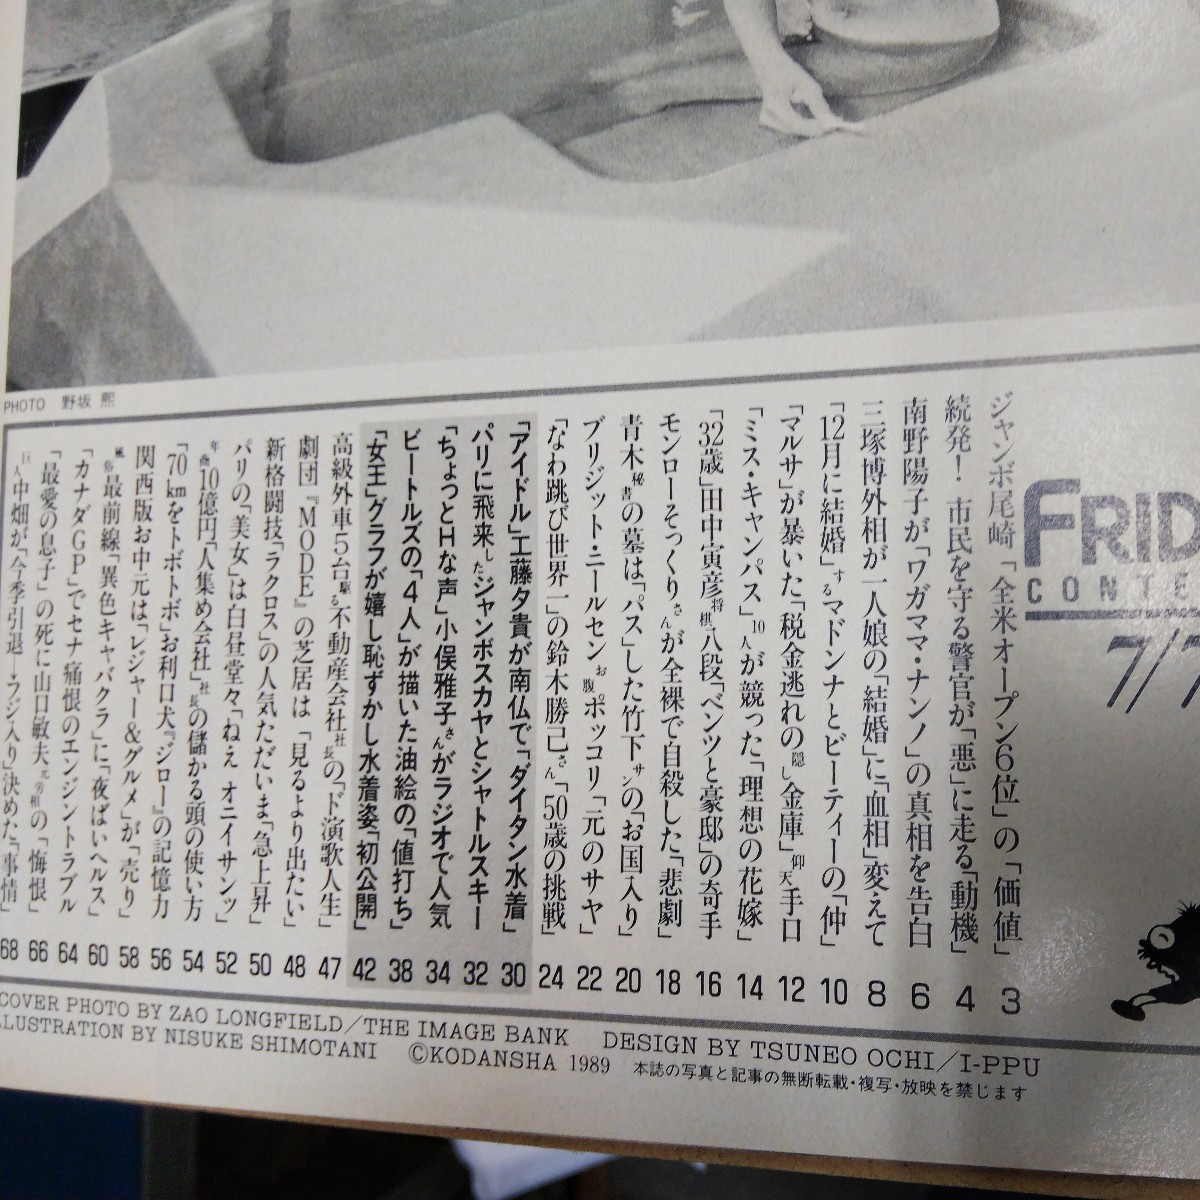 PHOTO 野坂 熙
FRID
CONTE
7/7
ジャンボ尾崎「全米オープン6位」の「価値」 3
続発! 市民を守る警官が「悪」に走る「動機」 4
南野陽子が「ワガママ・ナンノ」の真相を告白 6
三塚博外相が一人娘の「結婚」に「血相」変えて 8
「12月に結婚」するマドンナとビーティーの「仲」 10
「マルサ」が暴いた「税金逃れの隠し金庫」仰天手口 12
「ミス・キャンパス」10人が競った「理想の花嫁」 14
「32歳」田中寅彦将棋八段「ベンツと豪邸」の奇手 16
モンローそっくりさんが全裸で自殺した「悲劇」 18
青木秘書の墓は「パス」した竹下サンの「お国入り」 20
ブリジット・ニールセンお腹ポッコリ「元のサヤ」 22
「なわ跳び世界一」の鈴木勝己さん「50歳の挑戦」 24
「アイドル」工藤夕貴が南仏で「ダイタン水着」 30
パリに飛来したジャンボスカヤとシャトルスキー 32
「ちょっとHな声」小俣雅子さんがラジオで人気 34
ビートルズの「4人」が描いた油絵の「値打ち」 38
「女王」グラフが嬉し恥ずかし水着姿「初公開」 42
高級外車5台駆る不動産会社社長の「ド演歌人生」 47
劇団『MODE』の芝居は「見るより出たい」 48
新格闘技「ラクロス」の人気ただいま「急上昇」 50
パリの「美女」は白昼堂々「ねえ オニイサンッ」 52
年商10億円「人集め会社」社長の儲かる頭の使い方 54
「70kmをトボトボ」お利口犬『ジロー』の記憶力 56
関西版お中元は「レジャー&グルメ」が「売り」 58
風俗最前線「異色キャバクラ」に「夜ばいヘルス」 60
「カナダGP」でセナ痛恨のエンジントラブル 64
「最愛の息子」の死に山口敏夫元労相の「悔恨」 66
巨人中畑が「今季引退—フジ入り」決めた「事情」 68
COVER PHOTO BY ZAO LONGFIELD/THE IMAGE BANK DESIGN BY TSUNEO OCHI/I-PPU
ILLUSTRATION BY NISUKE SHIMOTANI ©KODANSHA 1989 本誌の写真と記事の無断転載・複写・放映を禁じます